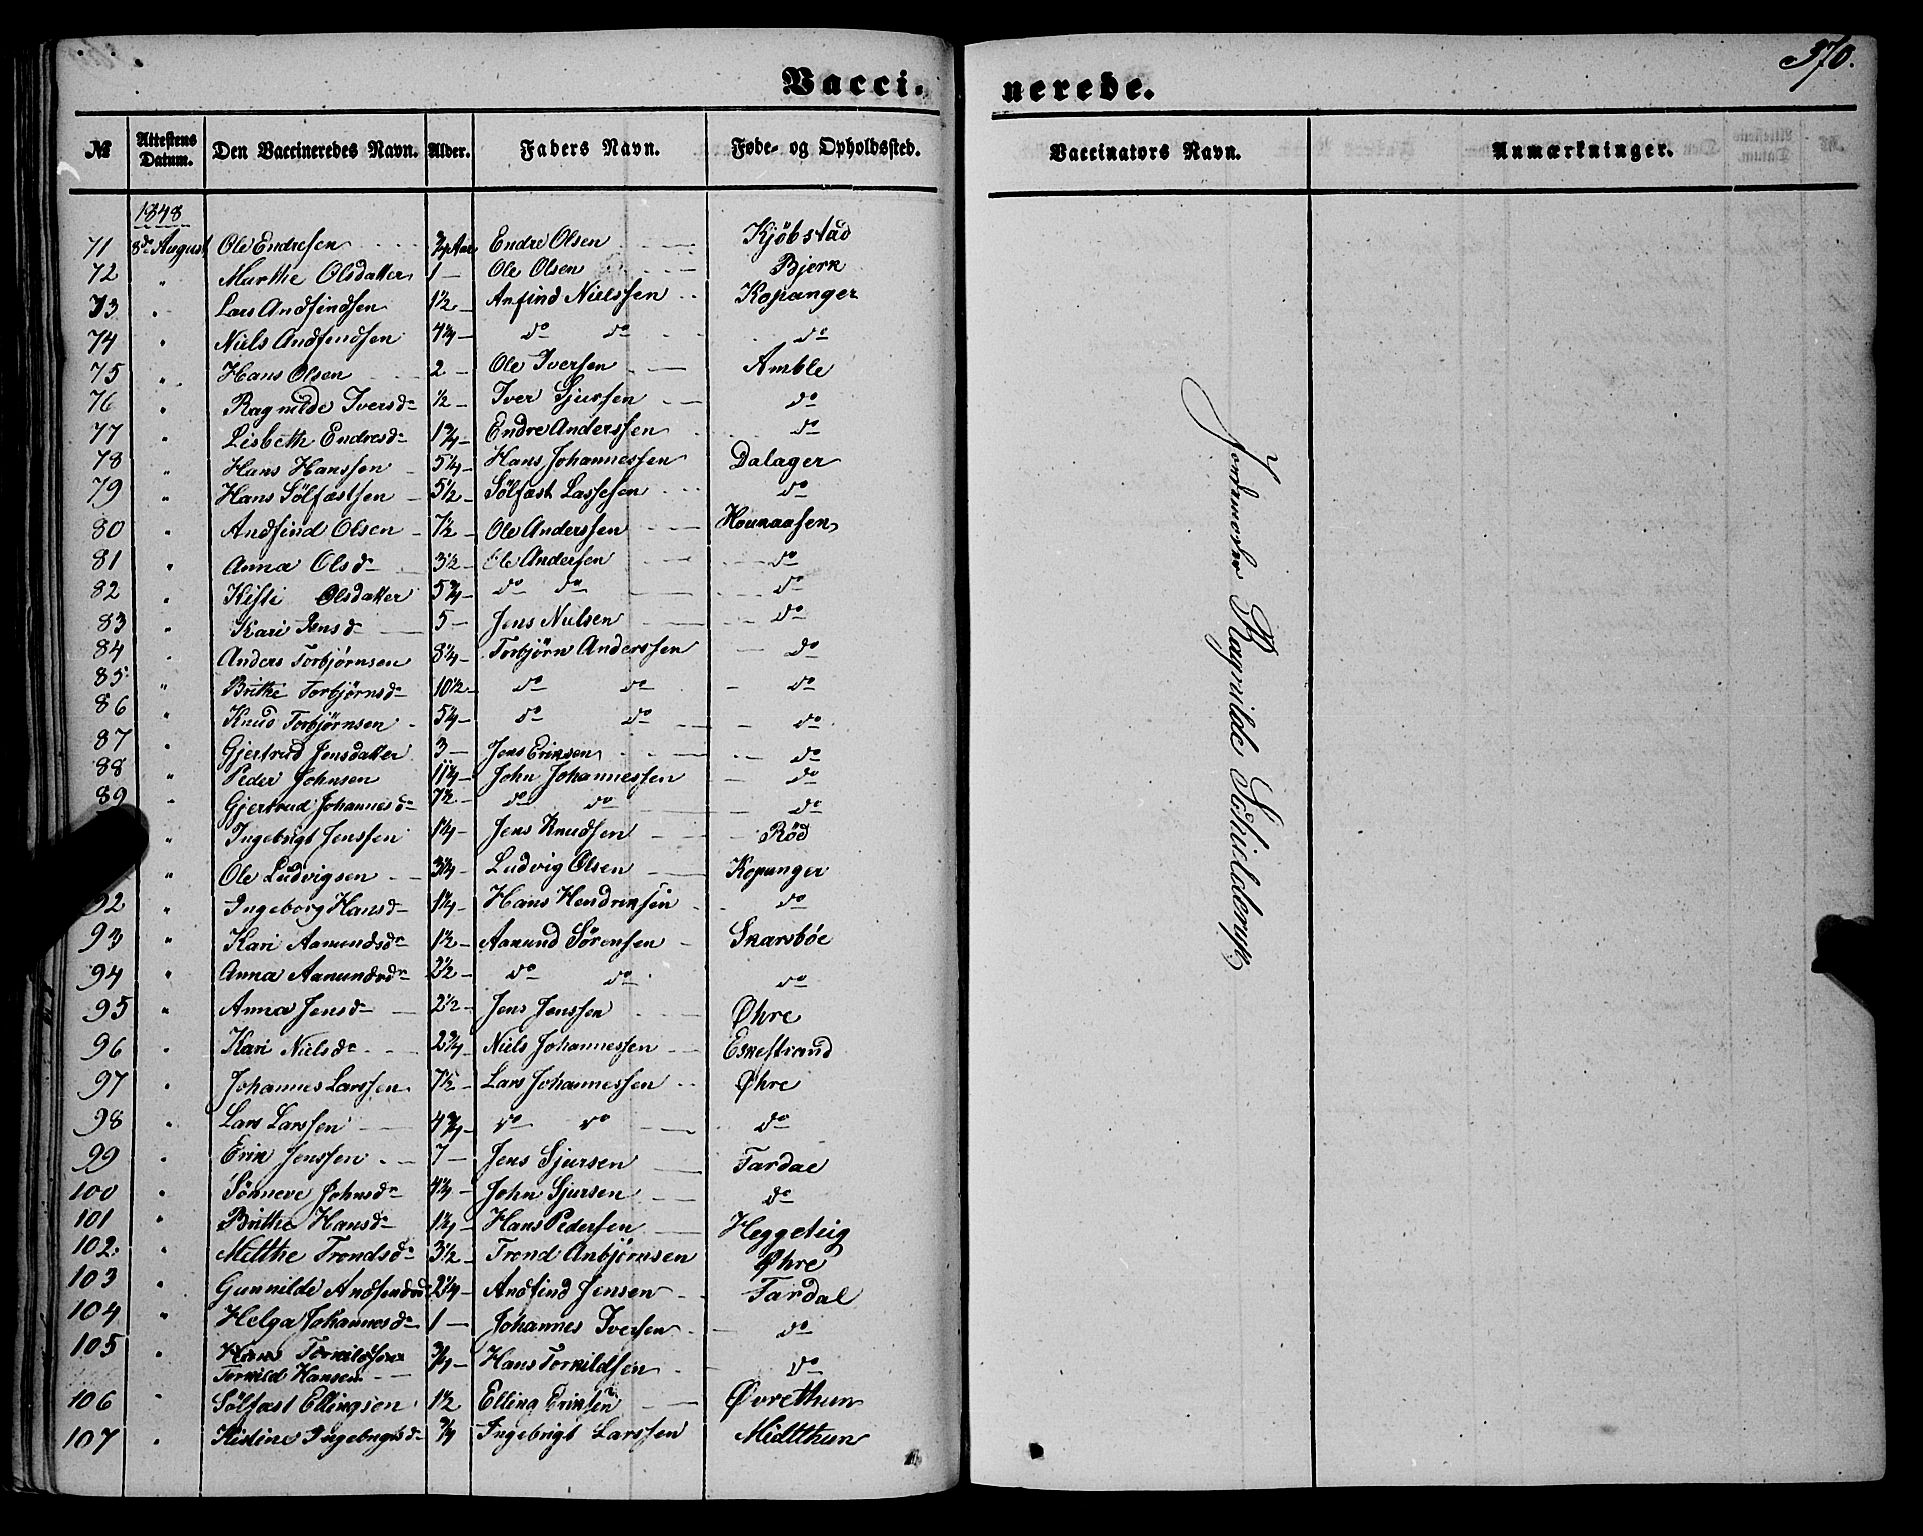 370.
Vacci-nerede.
№ | Attestens Datum. | Den Vaccineredes Navn. | Alder. | Faders Navn. | Føde- og Opholdssted. | Vaccinators Navn. | Anmærkninger.
1848
71 8de August Ole Endresen 3/4 Aar Endre Olsen Kjöbstad
72 " Marthe Olsdatter 1 – Ole Olsen Bjerk
73 " Lars Andfindsen 1½ – Anfind Nielssen Kopanger
74 " Niels Andfindsen 4¾ – do do do
75 " Hans Olsen 2 – Ole Iversen Amble
76 " Ragnilde Iversd. ½ – Iver Sjursen do
77 " Lisbeth Endresd. 1¾ – Endre Anderssen do
78 " Hans Hanssen 5¼ – Hans Johannessen Dalager
79 " Hans Sölfæstsen 5½ – Sölfæst Lassesen do
80 " Andfind Olsen 7½ – Ole Anderssen Hounaasen
81 " Anna Olsd. 3½ – Ole Andersen do
82 " Kisti Olsdatter 5¾ – do do do
83 " Kari Jensd. 5 – Jens Nielsen do
84 " Anders Torbjørnsen 8¼ – Torbjørn Anderssen do
85 " Brithe Torbjørnsd. 10½ – do do do
86 " Knud Torbjørnsen 5¼ – do do do
87 " Gjertrud Jensdatter 3 – Jens Eriksen do
88 " Peder Johnsen 11¼ – John Johannessen do
89 " Gjertrud Johannesd. 7½ – do do do
" Ingebrigt Jenssen 1¼ – Jens Knudsen Röd
" Ole Ludvigsen 3¾ – Ludvig Olsen Kopanger
92 " Ingeborg Hansd. 1¼ – Hans Hendriksen do
93 " Kari Aamundsdr 1½ – Aamund Sörensen Skarsböe
94 " Anna Aamundsdr 2½ – do do do
95 " Anna Jensd. 2½ – Jens Jenssen Øhre
96 " Kari Nielsd. 2¾ – Niels Johannessen Eskestrand
97 " Johannes Larssen 7½ – Lars Johannessen Øhre
98 " Lars Larssen 4¾ – do do do
99 " Erik Jenssen 7 – Jens Sjursen Fardal
100 " Sönneve Johnsd. 4¼ – John Sjursen do
101 " Brithe Hansd. 1¼ – Hans Pedersen Heggeteig
102 " Metthe Trondsd. 3½ – Trond Anbjörnsen Øhre
103 " Gunnilde Andfindsd. 2¼ – Andfind Jensen Fardal
104 " Helga Johannesd. 1 – Johannes Iversen do
105 " Hans Torkildsen ¾ – Hans Torkildsen do
Torkild Hansen
106 " Sölfæst Ellingsen 1½ Elling Eriksen Øvrethun
107 " Kistine Ingebrigtsd. ¾ Ingebrigt Larssen Midtthun
Jordmoder Ragnilde Schielderup